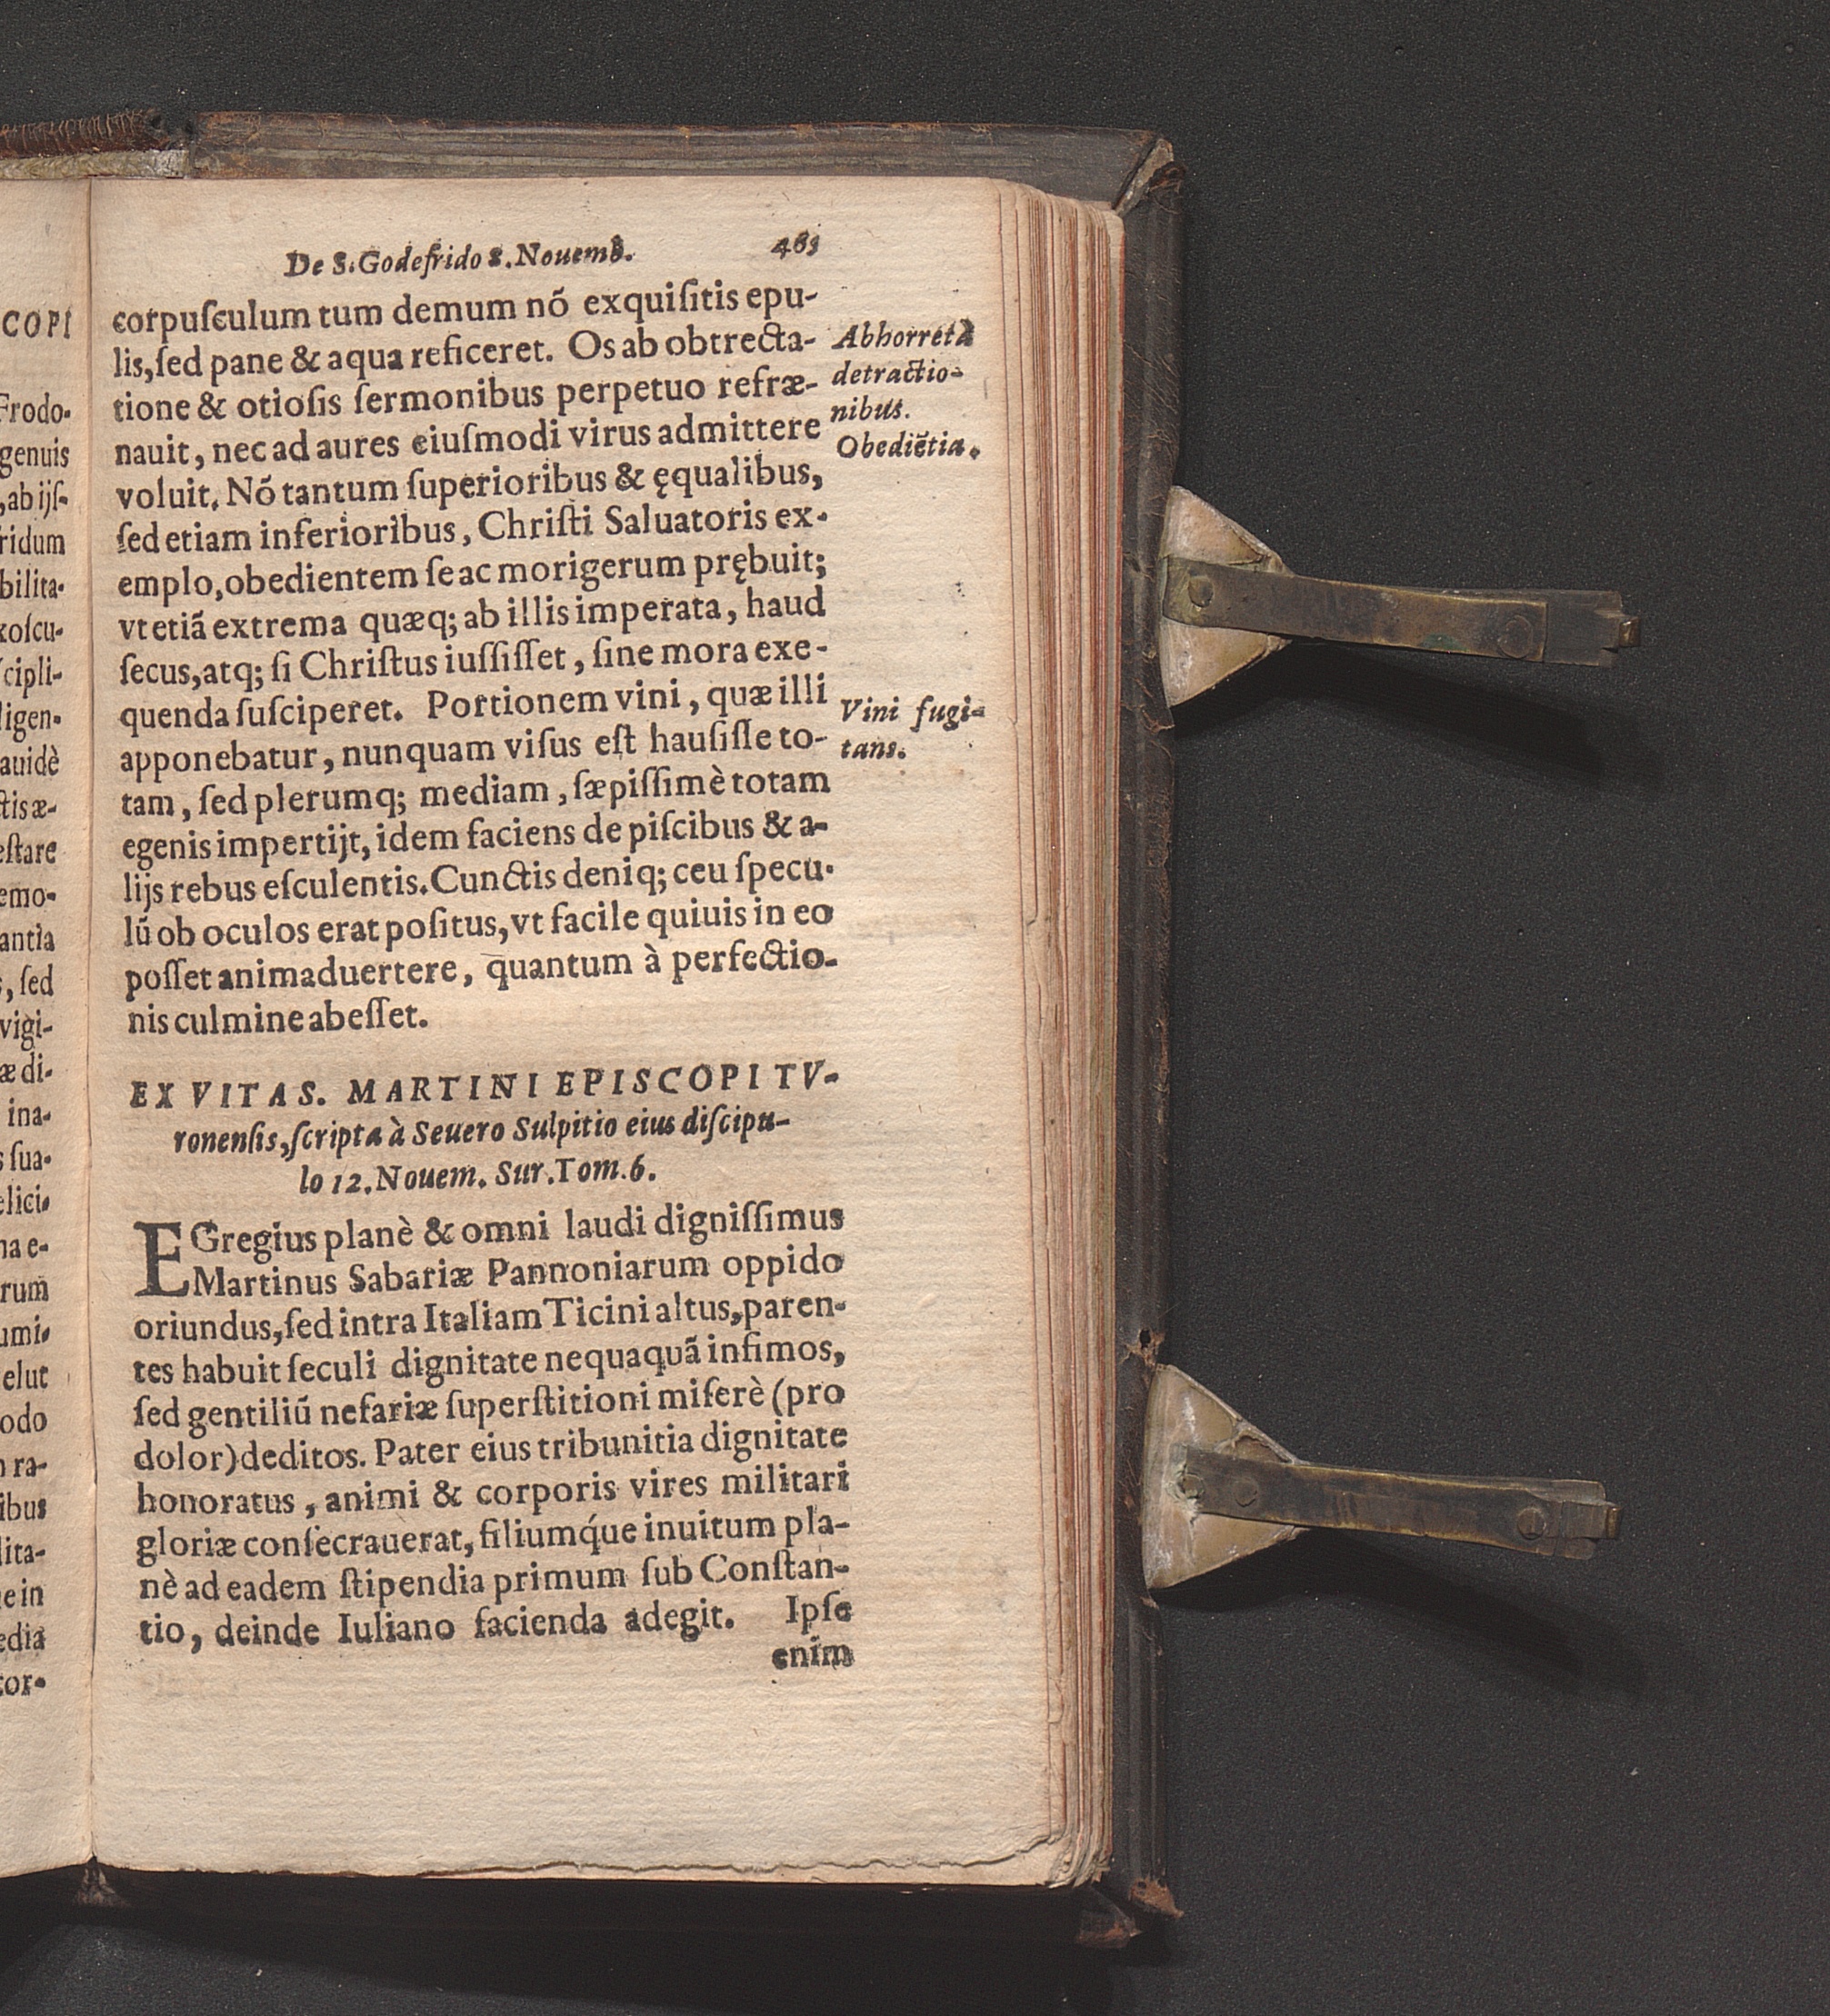 De S. Godefrido 8. Nouemb. 483
corpuſculum tum demum nõ exquiſitis epu-
lis, ſed pane & aqua reficeret. Os ab obtrecta-
tione & otioſis ſermonibus perpetuo refræ-
nauit, nec ad aures eiuſmodi virus admittere
voluit. Nõ tantum ſuperioribus & ęqualibus,
ſed etiam inferioribus, Chriſti Saluatoris ex-
emplo, obedientem ſe ac morigerum prębuit;
vt etiã extrema quæq; ab illis imperata, haud
ſecus, atq; ſi Chriſtus iuſſiſſet, ſine mora exe-
quenda ſuſciperet. Portionem vini, quæ illi
apponebatur, nunquam viſus eſt hauſiſſe to-
tam, ſed plerumq; mediam, ſæpiſſimè totam
egenis impertijt, idem faciens de piſcibus & a-
lijs rebus eſculentis. Cunctis deniq; ceu ſpecu-
lũ ob oculos erat poſitus, vt facile quiuis in eo
poſſet animaduertere, quantum à perfectio-
nis culmine abeſſet.
Abhorret à
detractio-
nibus.
Obediẽtia.
Vini fugi-
tans.
EX VITA S. MARTINI EPISCOPI TV-
ronenſis, ſcripta à Seuero Sulpitio eius diſcipu-
lo 12. Nouem. Sur. Tom. 6.
EGregius planè & omni laudi digniſſimus
Martinus Sabariæ Pannoniarum oppido
oriundus, ſed intra Italiam Ticini altus, paren-
tes habuit ſeculi dignitate nequaquã infimos,
ſed gentiliũ nefariæ ſuperſtitioni miſerè (pro
dolor) deditos. Pater eius tribunitia dignitate
honoratus, animi & corporis vires militari
gloriæ conſecrauerat, filiumq́ue inuitum pla-
nè ad eadem ſtipendia primum ſub Conſtan-
tio, deinde Iuliano facienda adegit. Ipſe
enim
COPI
Frodo-
genuis
, ab ijſ-
ridum
bilita-
xoſcu-
ſcipli-
ligen-
auidè
ctis æ-
eſtare
emo-
antia
, ſed
vigi-
æ di-
ina-
s ſua-
elici-
na e-
rum
umi-
elut
odo
n ra-
ibus
lita-
e in
edia
cor-